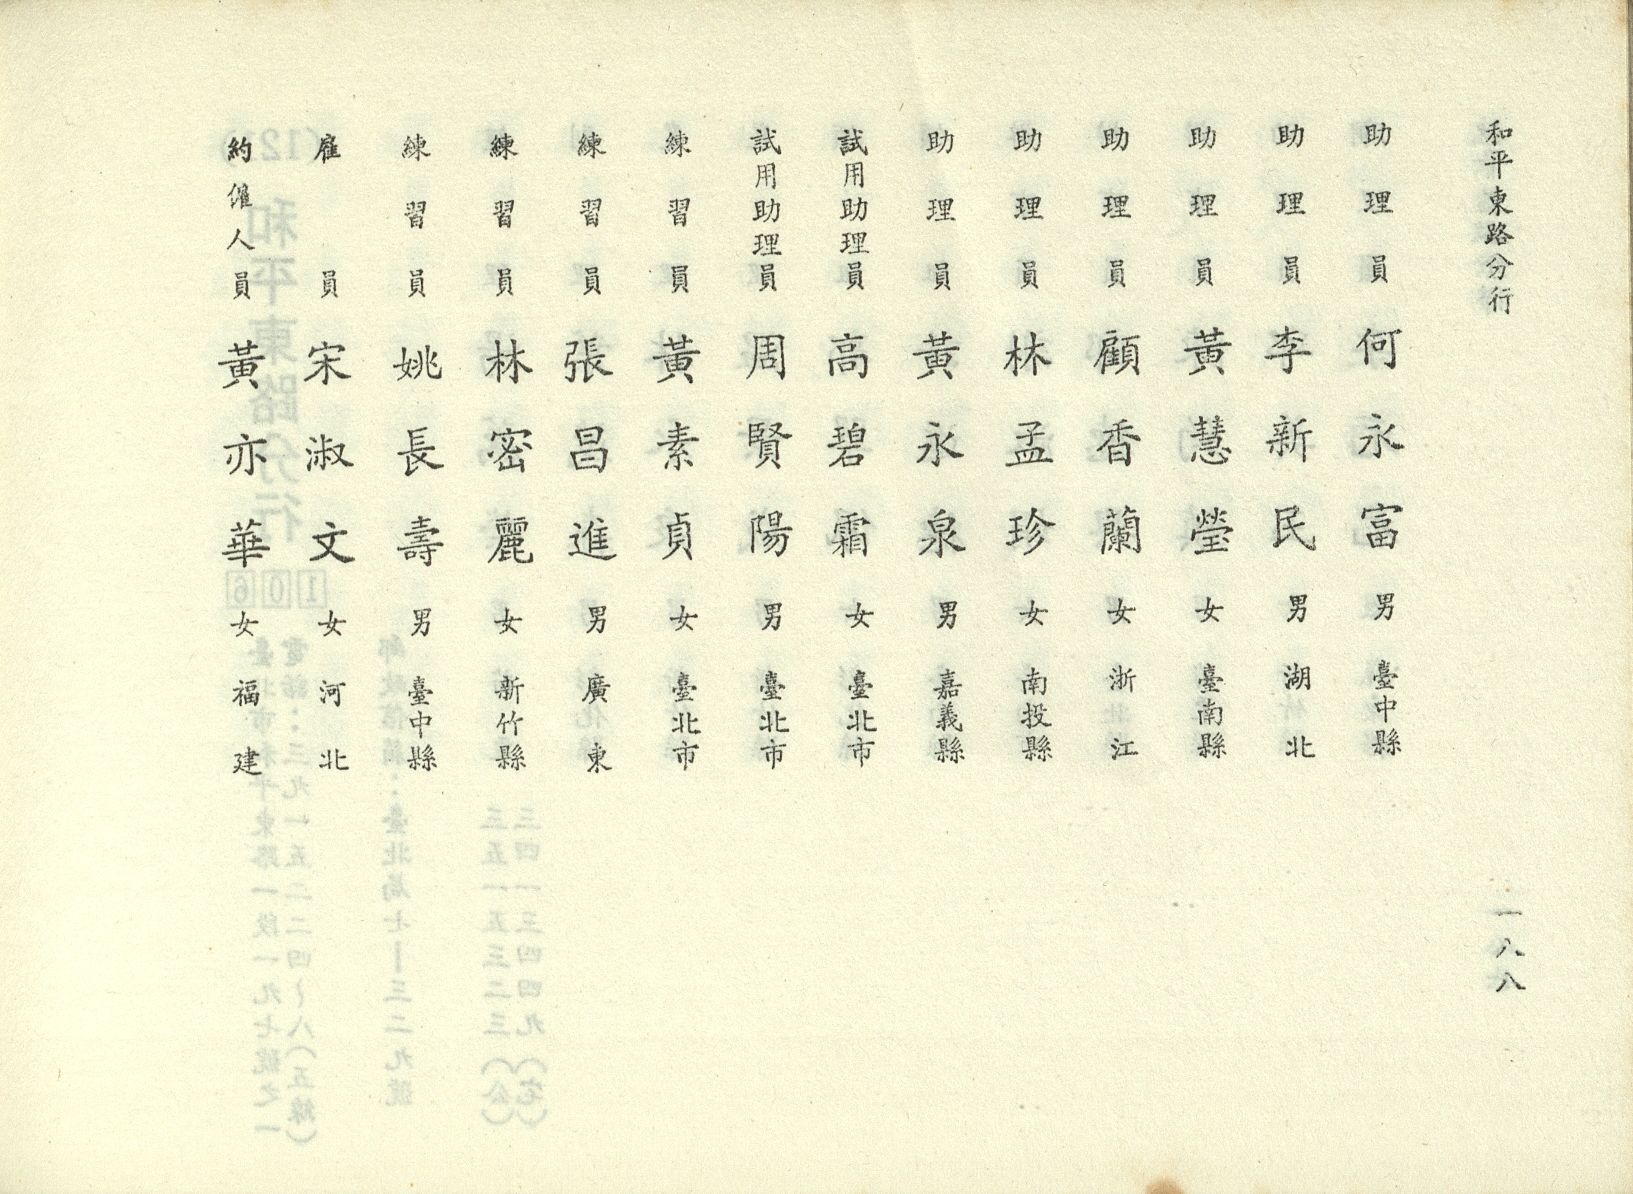 和平東路分行
一八八
助理員 何永富 男 臺中縣
助理員 李新民 男 湖北
助理員 黃慧瑩 女 臺南縣
助理員 顧香蘭 女 浙江
助理員 林孟珍 女 南投縣
助理員 黃永泉 男 嘉義縣
試用助理員 高碧霜 女 臺北市
試用助理員 周賢陽 男 臺北市
練習員 黃素貞 女 臺北市
練習員 張昌進 男 廣東
練習員 林密麗 女 新竹縣
練習員 姚長壽 男 臺中縣
雇員 宋淑文 女 河北
約僱人員 黃亦華 女 福建